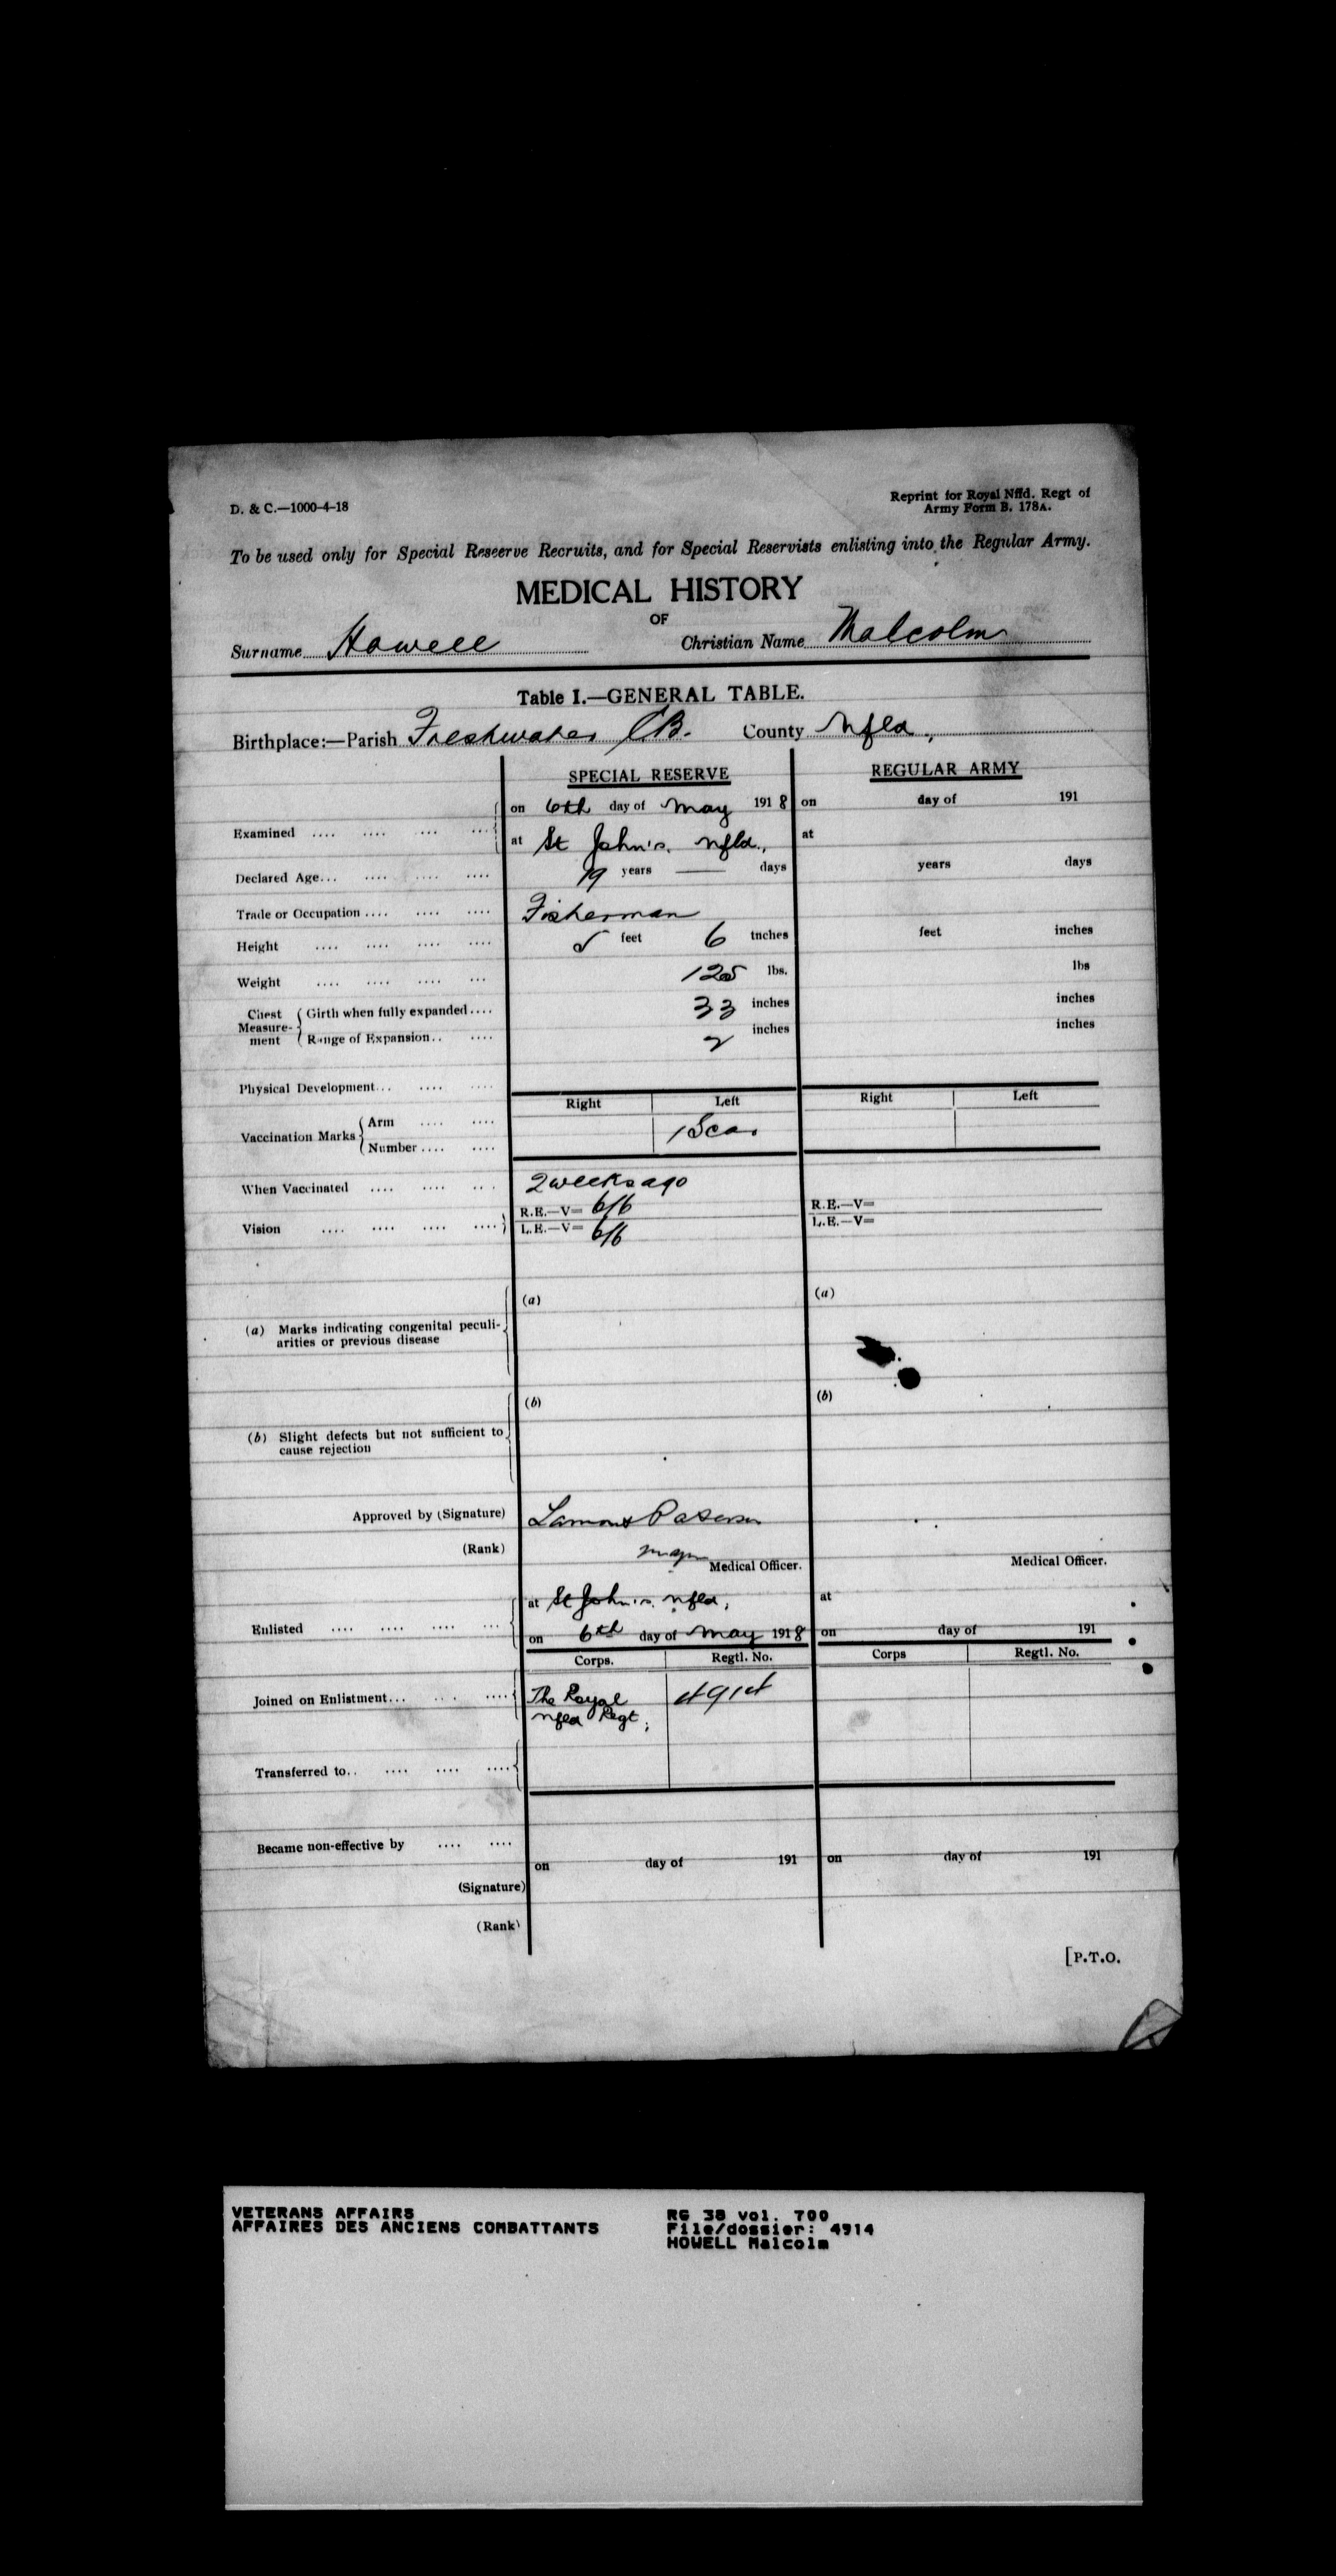 D. & C.—1000-4-18
Reprint for Royal Nffd. Regt of
Army Form B. 178A.
To be used only for Special Reseerve Recruits, and for Special Reservists enlisting into the Regular Army.
MEDICAL HISTORY
OF
Surname Howell Christian Name Malcolm
Table I.—GENERAL TABLE.
Birthplace:—Parish Freshwater CB. County Nfld,
SPECIAL RESERVE REGULAR ARMY
on 6th day of May 1918 on day of 191
Examined .... .... .... ....
at St John's. Nfld., at
Declared Age... .... .... .... 19 years — days years days
Trade or Occupation .... .... .... Fisherman
Height .... .... .... .... 5 feet 6 inches feet inches
Weight .... .... .... ... 125 lbs. lbs
Chest Measurement Girth when fully expanded.... 33 inches inches
Range of Expansion.. .... 2 inches inches
Physical Development... .... ....
Right Left Right Left
Vaccination Marks Arm .... .... 1 Scar
Number .... ....
When Vaccinated .... .... ... 2 weeks ago
Vision .... .... .... .... R.E.—V= 6/6 R.E.—V=
L.E.—V= 6/6 L.E.—V=
(a) (a)
(a) Marks indicating congenital peculi-
arities or previous disease
(b) (b)
(b) Slight defects but not sufficient to
cause rejection
Approved by (Signature) Lamont Paterson
(Rank) Major Medical Officer. Medical Officer.
at St John's. Nfld, at
Enlisted .... .... .... ...
on 6th day of May 1918 on day of 191
Corps. Regtl. No. Corps Regtl. No.
Joined on Enlistment... .... .... The Royal 4914
Nfld Regt,
Transferred to.. .... .... ....
Became non-effective by .... ....
on day of 191 on day of 191
(Signature)
(Rank)
[P.T.O.
VETERANS AFFAIRS RG 38 vol. 700
AFFAIRES DES ANCIENS COMBATTANTS File/dossier: 4914
HOWELL Malcolm